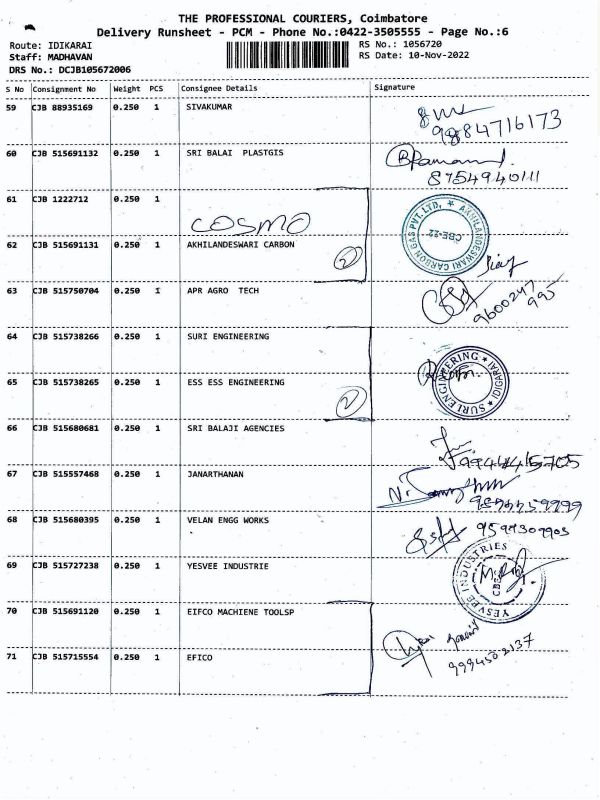 THE PROFESSIONAL COURIERS, Coimbatore
Delivery Runsheet - PCM - Phone No.:0422-3505555 - Page No.:6
Route: IDIKARAI
RS No.: 1056720
Staff: MADHAVAN
RS Date: 10-Nov-2022
DRS No.: DCJB105672006
S No Consignment No Weight PCS Consignee Details Signature
59 CJB 88935169 0.250 1 SIVAKUMAR
9884716173
60 CJB 515691132 0.250 1 SRI BALAI PLASTGIS
8754940111
61 CJB 1222712 0.250 1
COSMO
AKHILANDESWARI CARBON GAS PVT. LTD, ★ CBE-22
62 CJB 515691131 0.250 1 AKHILANDESWARI CARBON
2
63 CJB 515750704 0.250 1 APR AGRO TECH
9600247
995
64 CJB 515738266 0.250 1 SURI ENGINEERING
65 CJB 515738265 0.250 1 ESS ESS ENGINEERING
2
★ SURI ENGINEERING ★ IDIGARAI
66 CJB 515680681 0.250 1 SRI BALAJI AGENCIES
67 CJB 515557468 0.250 1 JANARTHANAN
68 CJB 515680395 0.250 1 VELAN ENGG WORKS
69 CJB 515727238 0.250 1 YESVEE INDUSTRIE
YESVEE INDUSTRIES ★
70 CJB 515691120 0.250 1 EIFCO MACHIENE TOOLSP
71 CJB 515715554 0.250 1 EFICO
9994502137